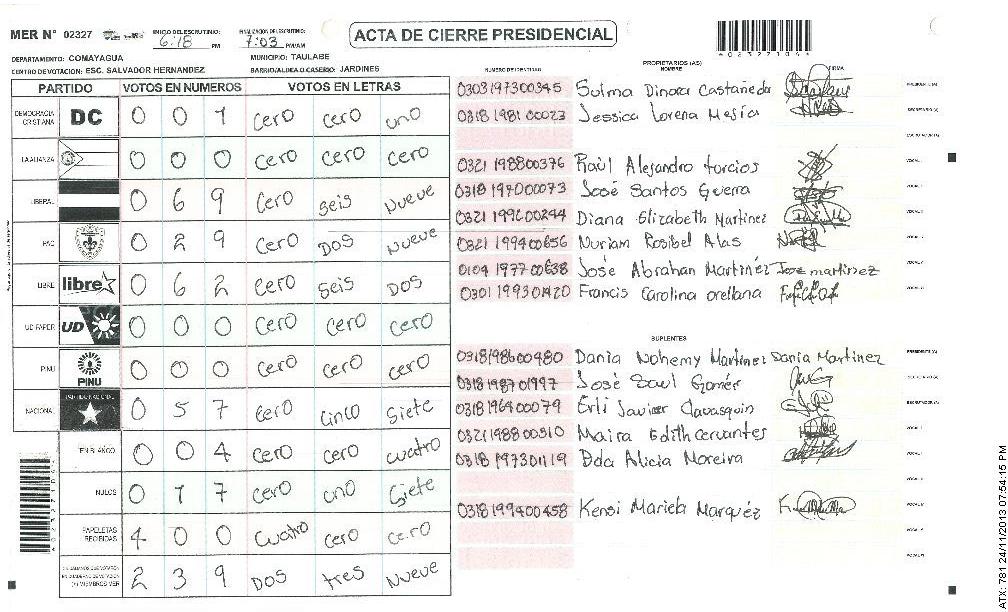 MER N° 02327
INICIO DEL ESCRUTINIO: 6:18 PM
FINALIZACION DEL ESCRUTINIO: 7:03 PM/AM
ACTA DE CIERRE PRESIDENCIAL
DEPARTAMENTO: COMAYAGUA
MUNICIPIO: TAULABE
CENTRO DE VOTACION: ESC. SALVADOR HERNANDEZ
BARRIO/ALDEA O CASERIO: JARDINES
PARTIDO VOTOS EN NUMEROS VOTOS EN LETRAS
DEMOCRACIA CRISTIANA DC 0 0 1 cero cero uno
LA ALIANZA 0 0 0 cero cero cero
LIBERAL 0 6 9 cero seis nueve
PAC 0 2 9 cero dos nueve
LIBRE libre 0 6 2 cero seis dos
UD FAPER UD 0 0 0 cero cero cero
PINU PINU 0 0 0 cero cero cero
NACIONAL PARTIDO NACIONAL 0 5 7 cero cinco siete
EN BLANCO 0 0 4 cero cero cuatro
NULOS 0 1 7 cero uno siete
PAPELETAS RECIBIDAS 4 0 0 cuatro cero cero
2 3 9 dos tres nueve
PROPIETARIOS (AS)
NUMERO DE IDENTIDAD NOMBRE FIRMA
0303197300345 Sulma Dinora Castañeda PRESIDENTE (A)
0318 1981 00023 Jessica Lorena Mejía SECRETARIO (A)
ESCRUTADOR (A)
0321 198800376 Raúl Alejandro torcios VOCAL
0318 197000073 José Santos Guerra VOCAL
0321 199600244 Diana Elizabeth Martinez VOCAL
0321 199400656 Nuriam Rosibel Alas VOCAL
0104 197700638 José Abrahan Martinez Jose martinez VOCAL
0301 199301420 Francis Carolina orellana VOCAL
SUPLENTES
0318198600480 Dania Nohemy Martinez Dania Martinez PRESIDENTE (A)
0318198701997 José Saul Gomér SECRETARIO (A)
0318196400079 Erli Javier Cavasquin ESCRUTADOR (A)
0321198800510 Maira Edith cervantes VOCAL
0318 197301119 Dda Alicia Moreira VOCAL
VOCAL
0318 199400458 Kensi Mariela Marquéz VOCAL
VOCAL
VOCAL
4023271094
ATX: 781 24/11/2013 07:54:15 PM